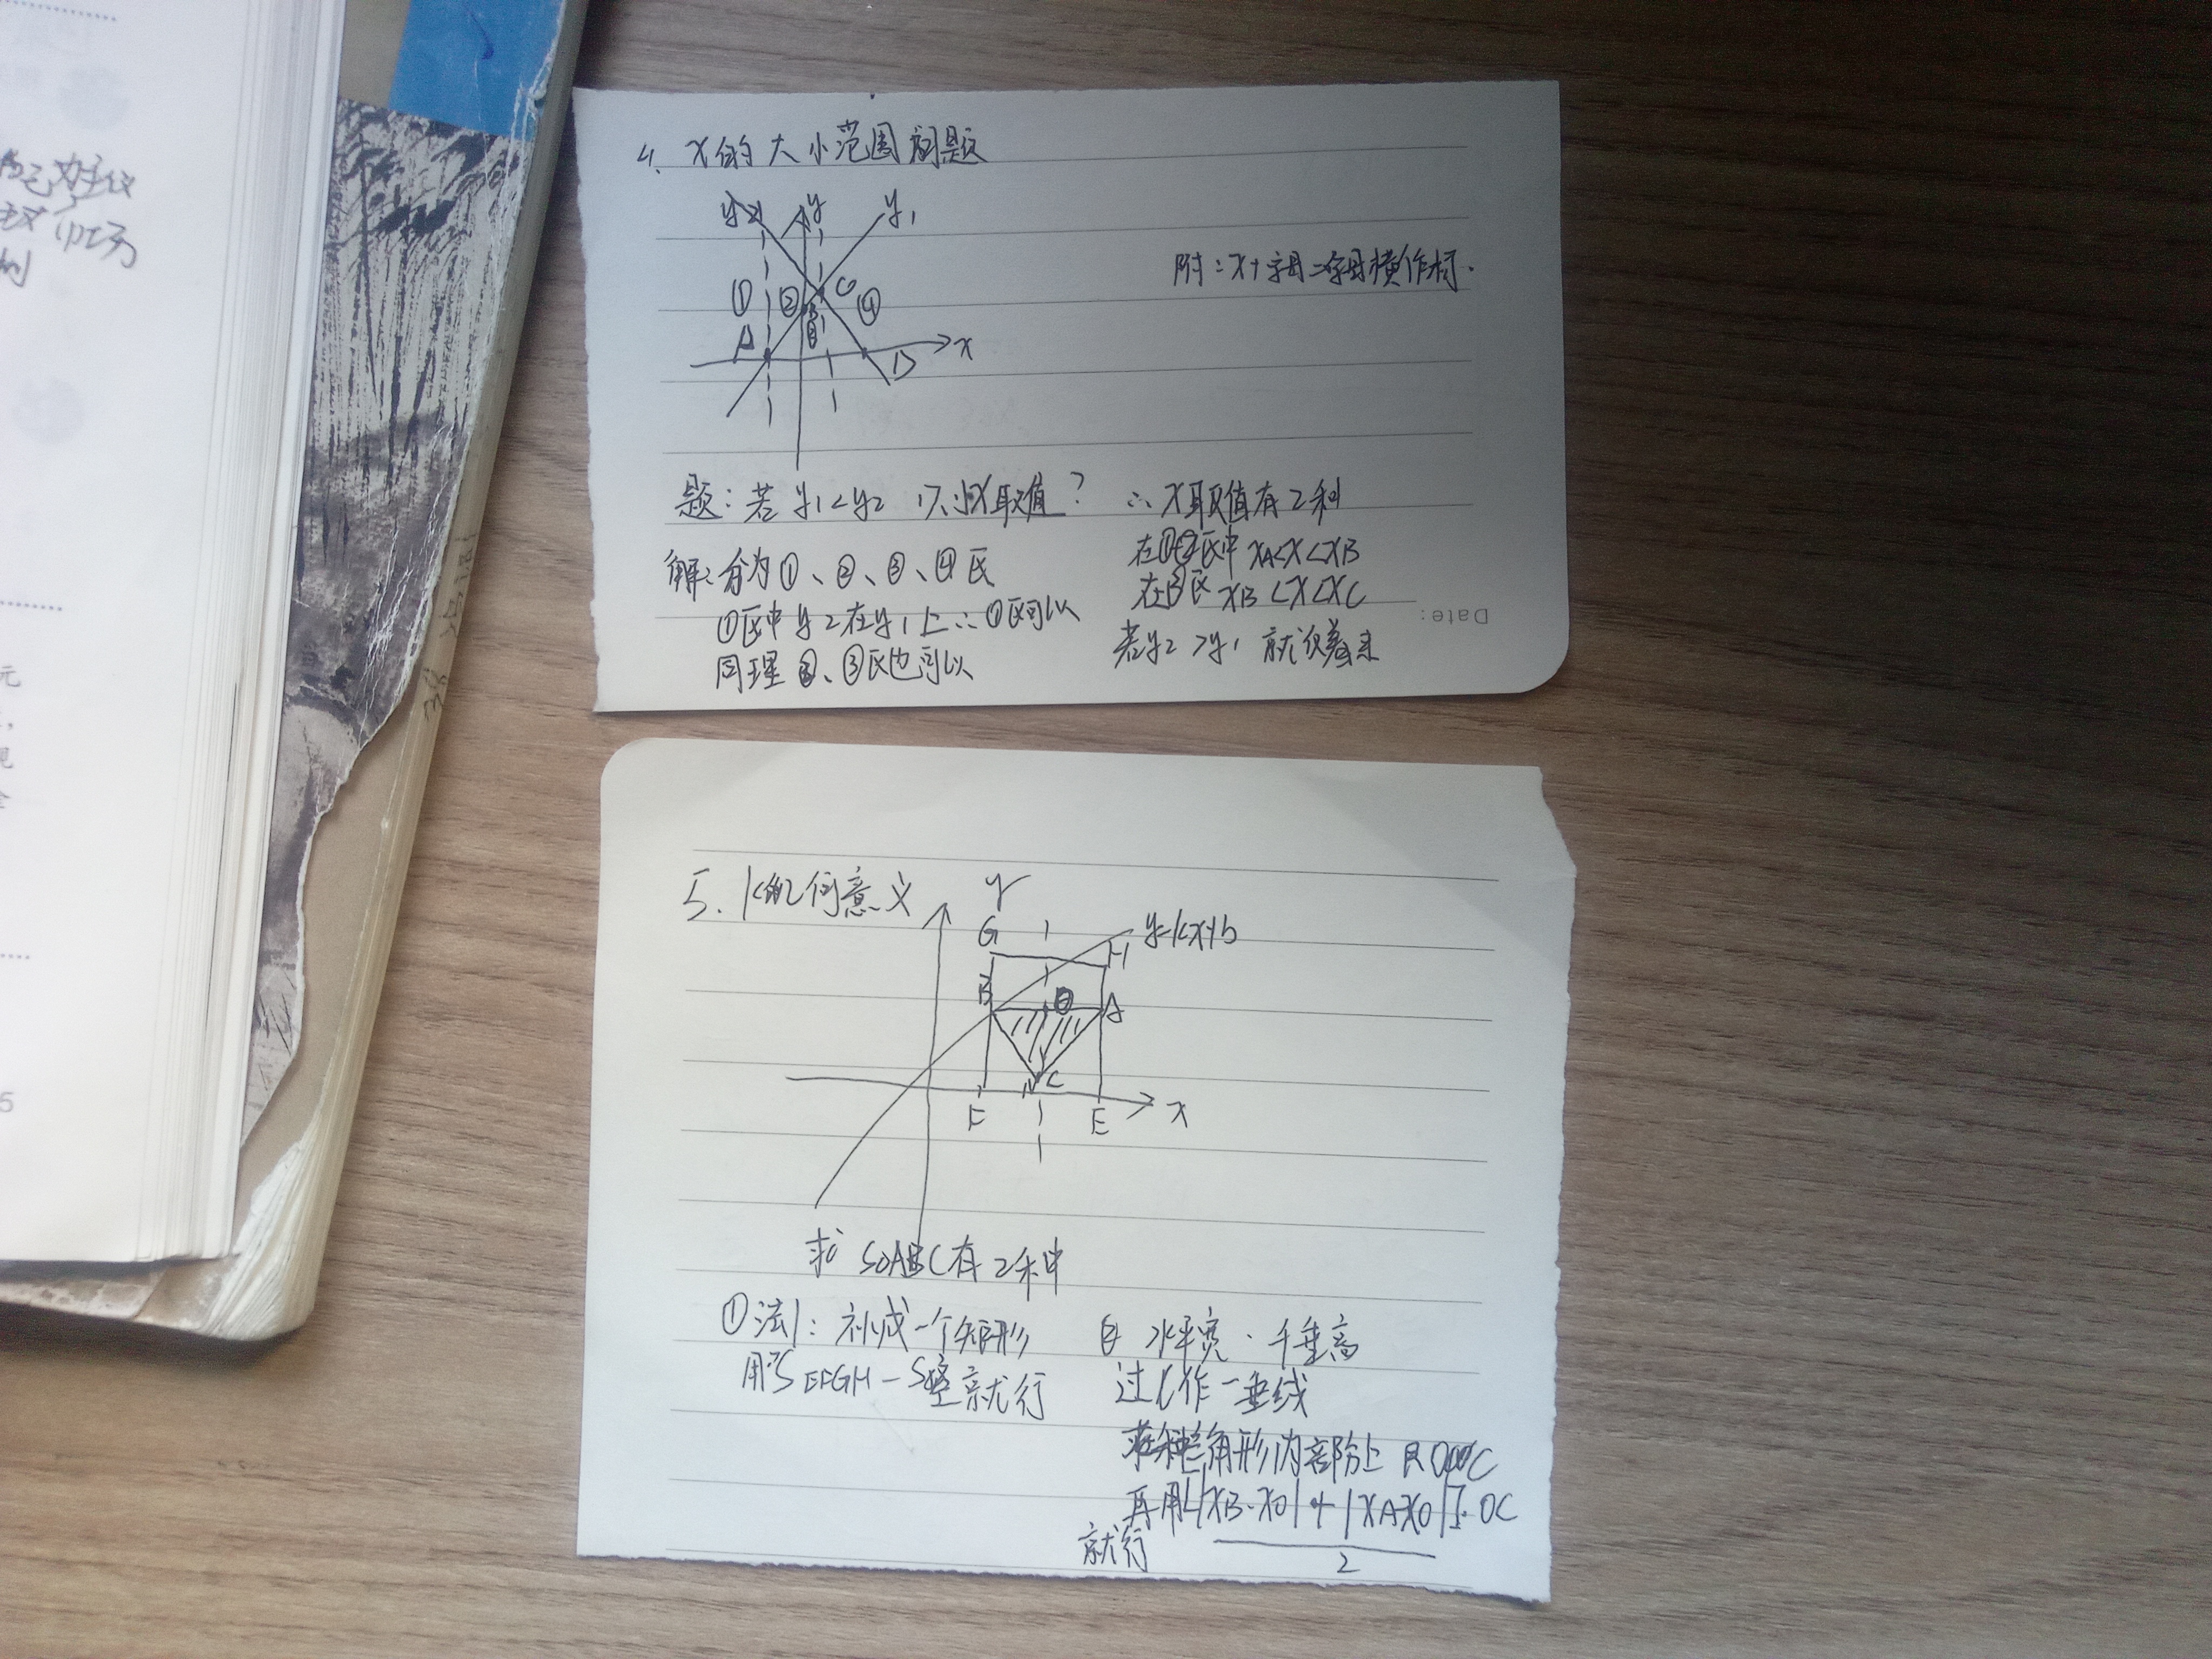 4. x的大小范围问题
y2 y y1
① ② C ④
A B D x
附:x+字母=字母横作标.
题:若 y1<y2 求x取值?
解:分为①、②、③、④区
①区中y2在y1上∴①区可以
同理②、③区也可以
∴x取值有2种
在①②区中 xA<x<xB
在③区 xB<x<xC
若y2>y1 就
Date:
5. k的几何意义
y
G H y=kx+b
B D A
C
F E x
求 S△ABC有2种
①法1:补成一个矩形
用S EFGH-S空就行
② 水平宽·千垂高
过C作一垂线
角形内部分上
再用[|xB-xD|+|xA-xD|]·DC
2
就行
5